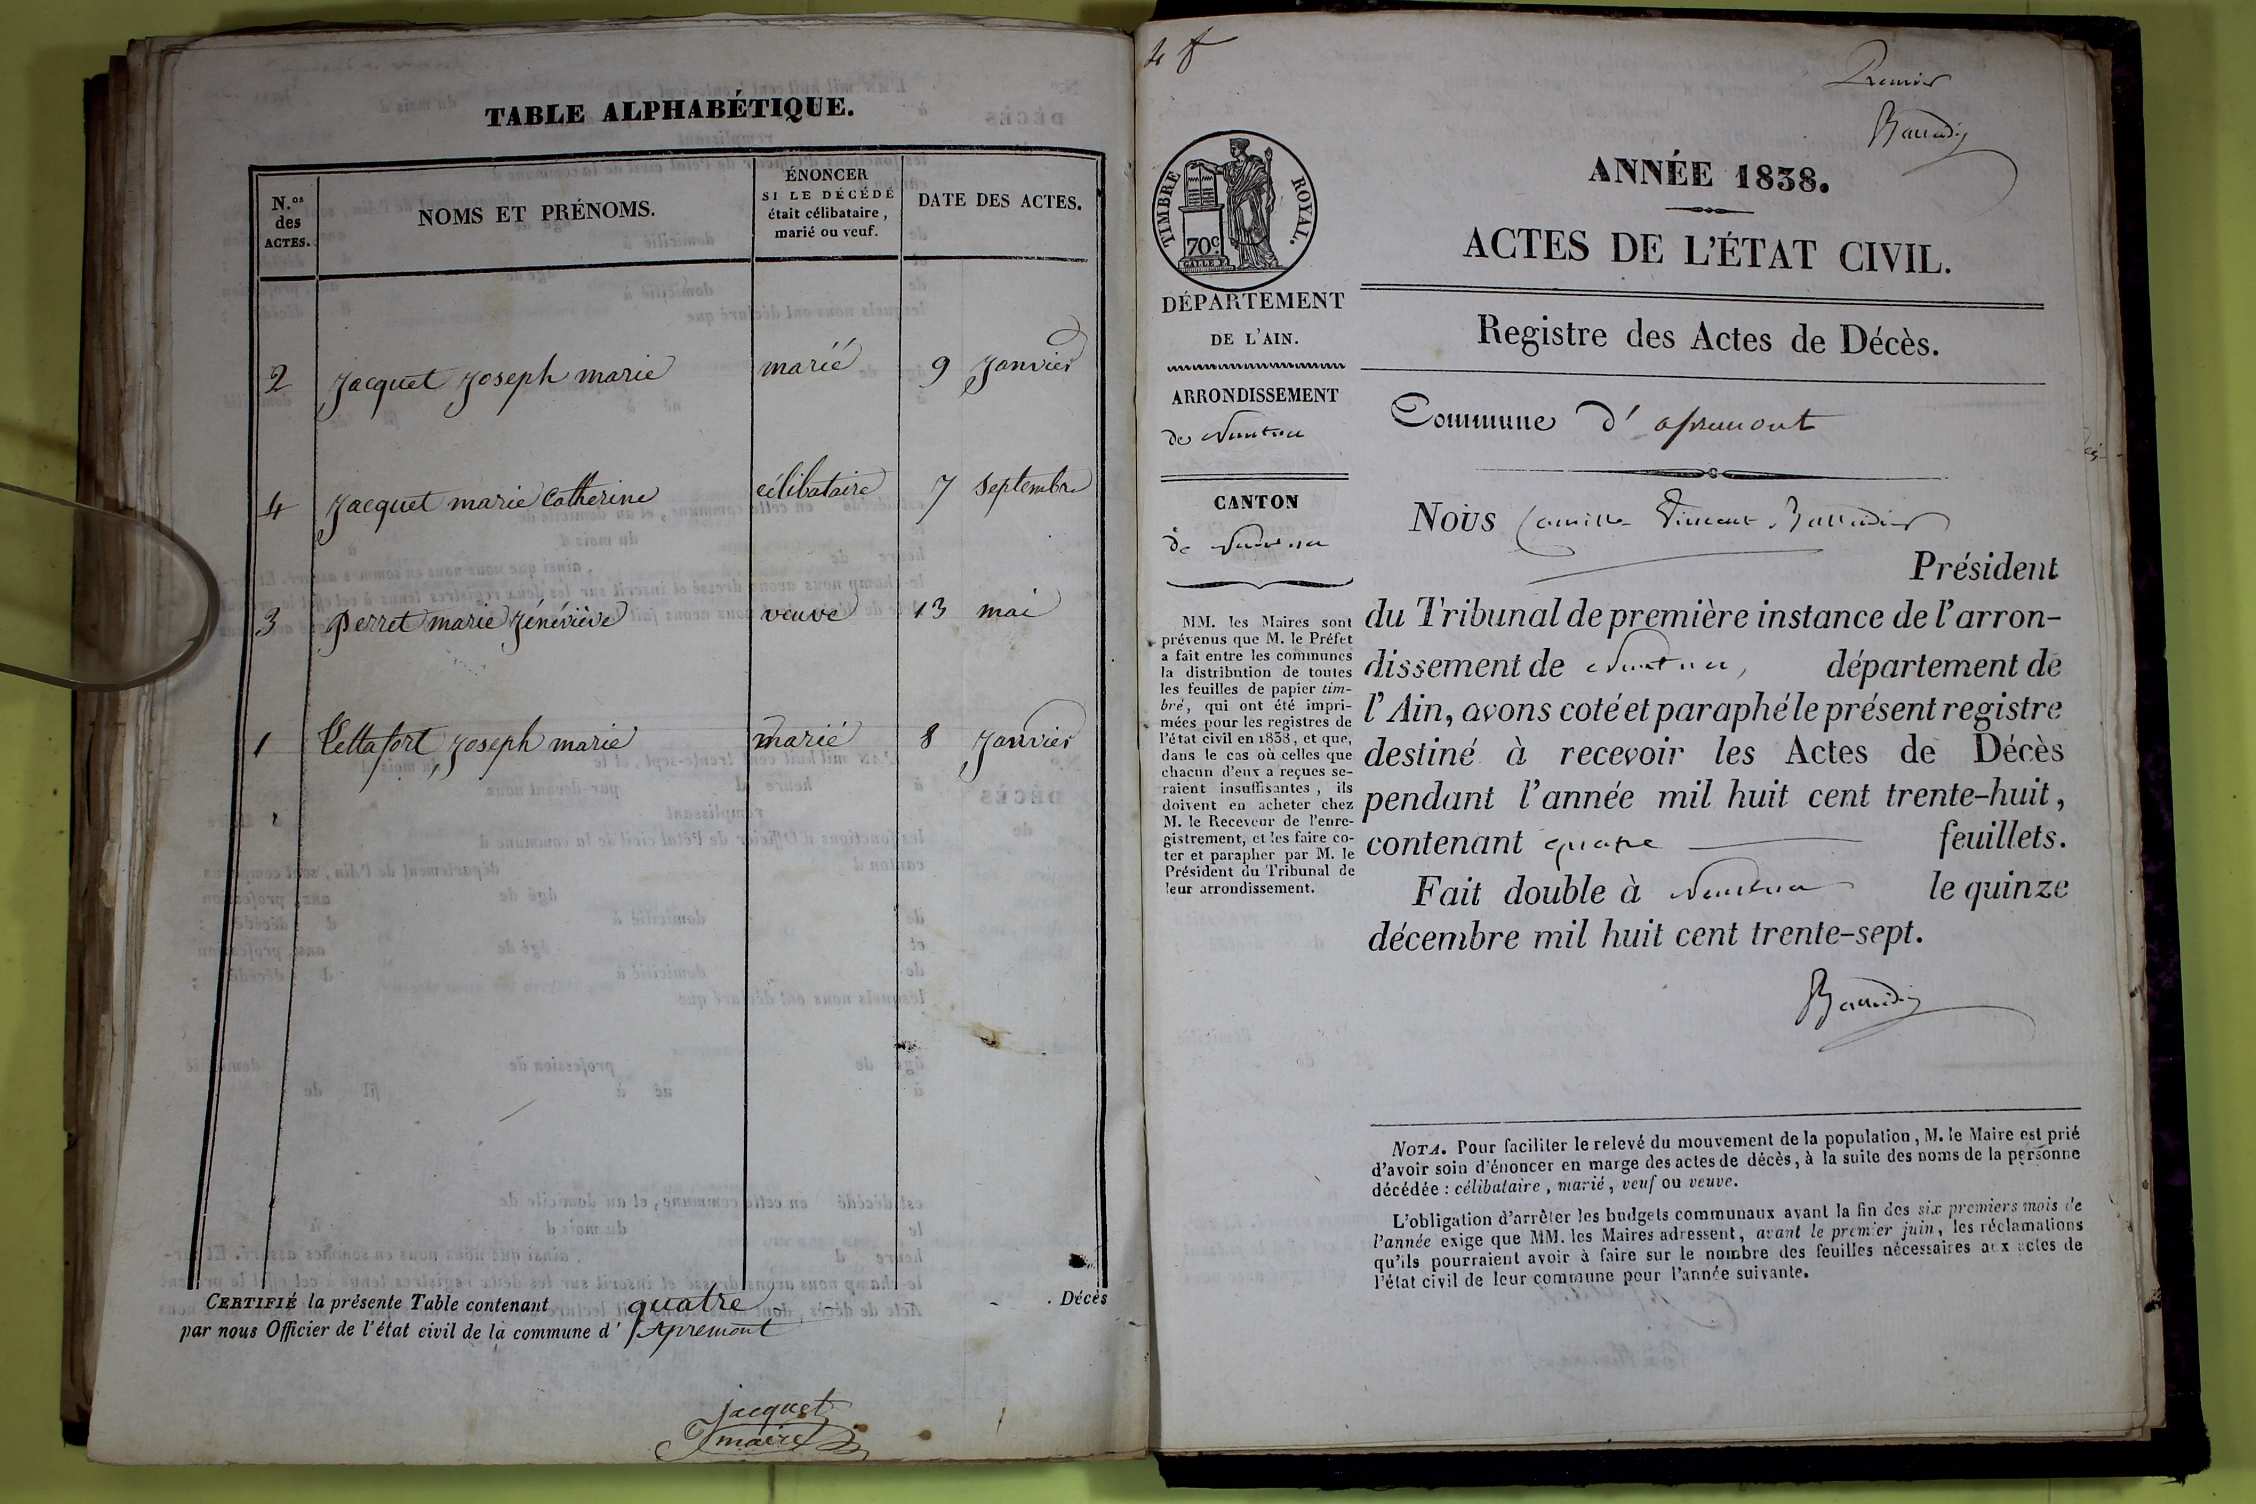 TABLE ALPHABÉTIQUE.
N.os des ACTES.
NOMS ET PRÉNOMS.
ÉNONCER
SI LE DÉCÉDÉ
était célibataire,
marié ou veuf.
DATE DES ACTES.
2 Jacquet Joseph marie marié 9 Janvier
4 Jacquet marie Catherine célibataire 7 septembre
3 Perret marie Jénéviève veuve 13 mai
1 Joseph marie marié 8 Janvier
CERTIFIÉ la présente Table contenant quatre Décès
par nous Officier de l'état civil de la commune d' Apremont
jacquet
maire
Premier
ANNÉE 1838.
ACTES DE L'ÉTAT CIVIL.
TIMBRE ROYAL.
70c
GALLE F.
DÉPARTEMENT
DE L'AIN.
ARRONDISSEMENT
de Nantua
CANTON
de Nantua
MM. les Maires sont
prévenus que M. le Préfet
a fait entre les communes
la distribution de toutes
les feuilles de papier tim-
bré, qui ont été impri-
mées pour les registres de
l'état civil en 1838, et que,
dans le cas où celles que
chacun d'eux a reçues se-
raient insuffisantes, ils
doivent en acheter chez
M. le Receveur de l'enre-
gistrement, et les faire co-
ter et parapher par M. le
Président du Tribunal de
leur arrondissement.
Registre des Actes de Décès.
Commune d' apremont
Nous Camille Vincent
Président
du Tribunal de première instance de l'arron-
dissement de Nantua, département de
l'Ain, avons coté et paraphé le présent registre
destiné à recevoir les Actes de Décès
pendant l'année mil huit cent trente-huit,
contenant quatre feuillets.
Fait double à Nantua le quinze
décembre mil huit cent trente-sept.
NOTA. Pour faciliter le relevé du mouvement de la population, M. le Maire est prié
d'avoir soin d'énoncer en marge des actes de décès, à la suite des noms de la personne
décédée : célibataire, marié, veuf ou veuve.
L'obligation d'arrêter les budgets communaux avant la fin des six premiers mois de
l'année exige que MM. les Maires adressent, avant le premier juin, les réclamations
qu'ils pourraient avoir à faire sur le nombre des feuilles nécessaires aux actes de
l'état civil de leur commune pour l'année suivante.